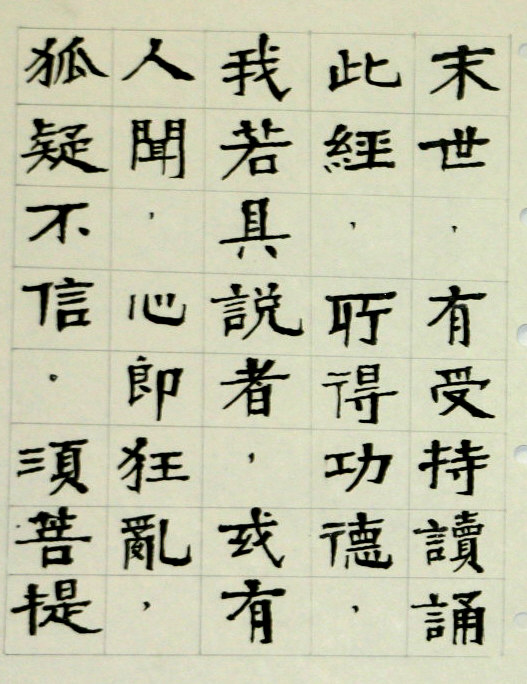 末世，有受持讀誦
此經，所得功德，
我若具說者，或有
人聞，心即狂亂，
狐疑不信。須菩提